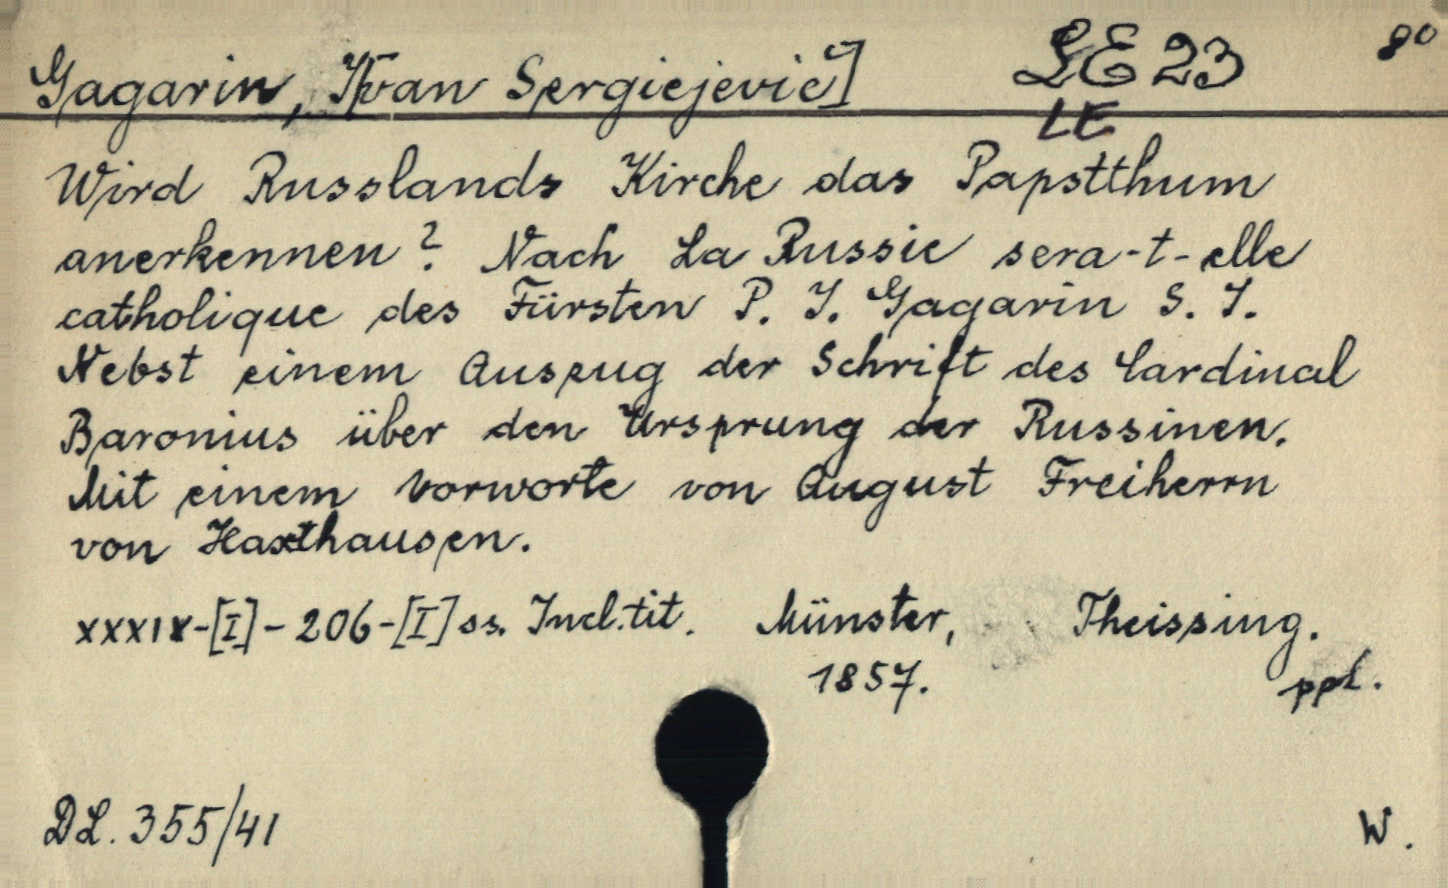 Gagarin, I[van Sergiejevič] LE 23 8°
LE
Wird Russlands Kirche das Papstthum
anerkennen? Nach La Russie sera-t-elle
catholique des Fürsten P. I. Gagarin S. I.
Nebst einem Auszug der Schrift des Cardinal
Baronius über den Ursprung der Russinen.
Mit einem Vorworte von August Freiherrn
von Haxthausen.
XXXIX-[I]-206-[I] ss. Incl. tit. Münster, Theissing.
1857. ppl.
DL. 355/41 W.